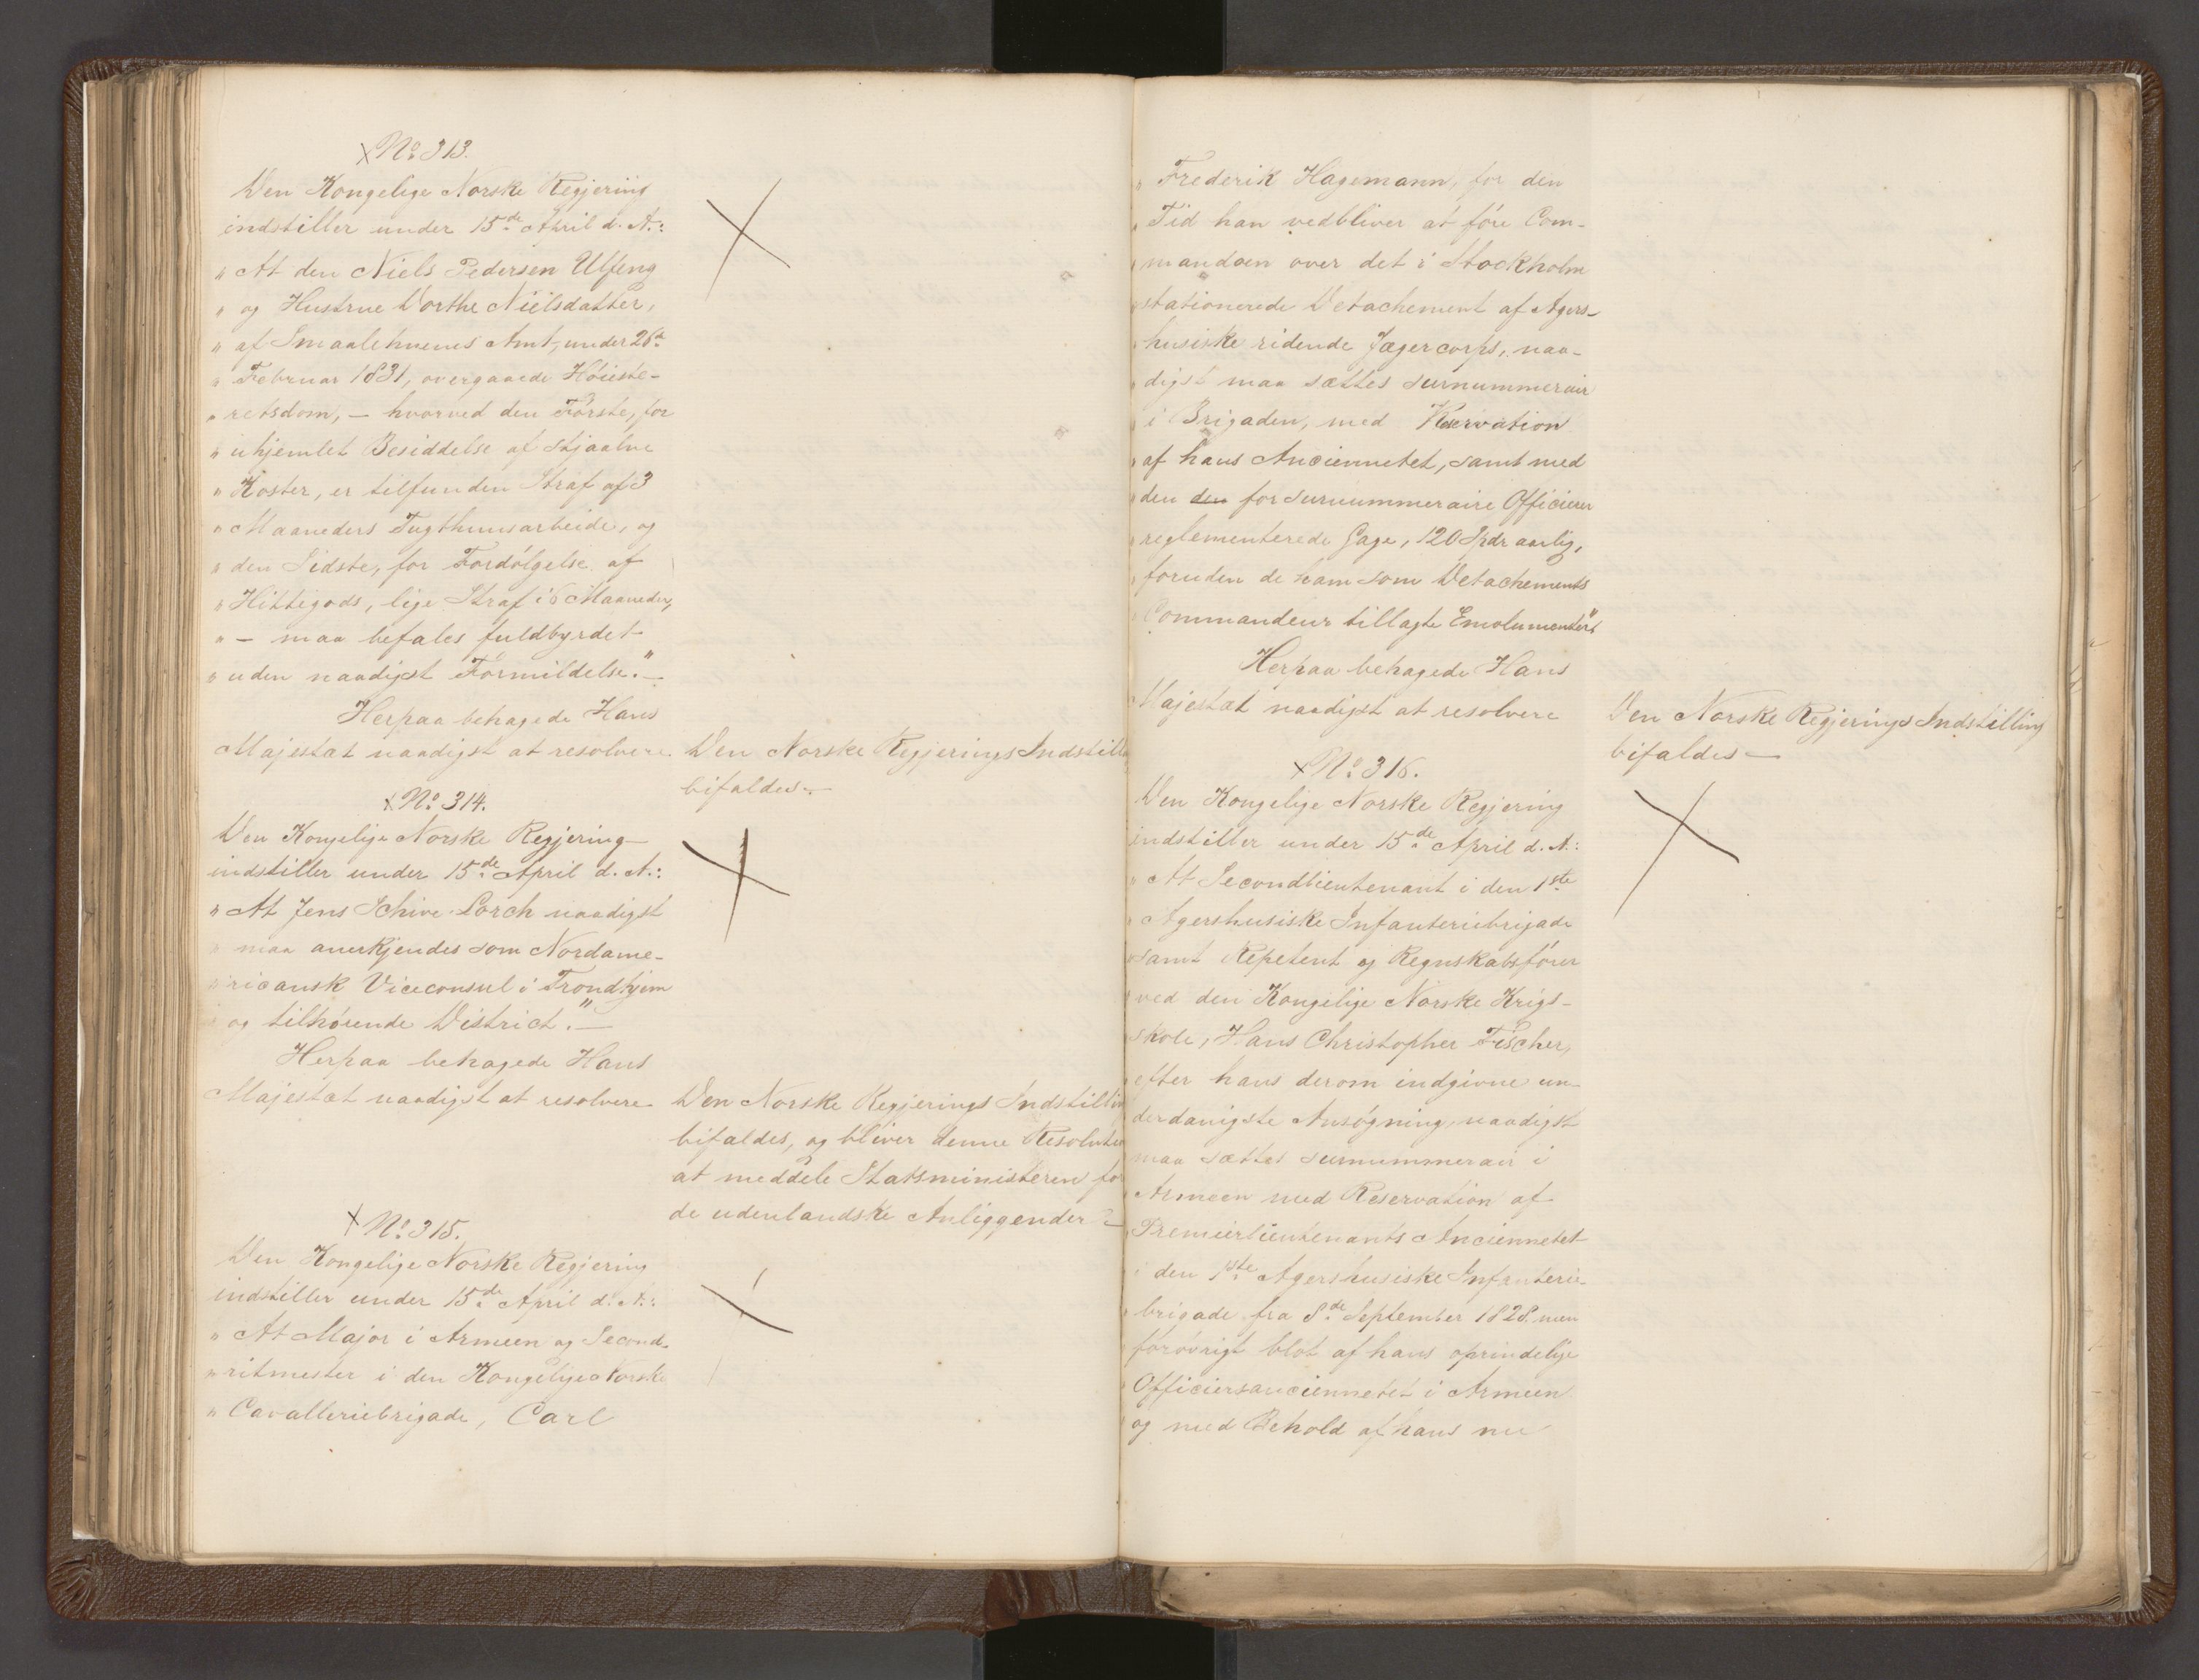 No 313.
Den Kongelige Norske Regjering
indstiller under 15de April d. A.:
" At den Niels Pedersen Ulfeng
" og Hustrue Dorthe Nielsdatter,
" af Smaalehnenes Amt, under 26de
" Februar 1831, overgaaede Høieste-
" retsdom, — hvorved den Første, for
" uhjemlet Besiddelse af stjaalne
" Koster, er tilfunden Straf af 3
" Maaneders Tugthuusarbeide, og
" den Sidste, for Fordølgelse af
" Hittegods, lige Straf i 6 Maaneder,
" — maa befales fuldbyrdet
" uden naadigst Formildelse." —
Herpaa behagede Hans
Majestæt naadigst at resolvere
Den Norske Regjerings Indstilling
bifaldes. —
No 314.
Den Kongelige Norske Regjering
indstiller under 15de April d. A.:
" At Jens Schive Lorch naadigst
" maa anerkjendes som Nordame-
" ricansk Viceconsul i Trondhjem
" og tilhørende District." —
Herpaa behagede Hans
Majestæt naadigst at resolvere
Den Norske Regjerings Indstilling
bifaldes, og bliver denne Resolution
at meddele Statsministeren for
de udenlandske Anliggender —
No 315.
Den Kongelige Norske Regjering
indstiller under 15de April d. A.:
" At Major i Armeen og Second-
" ritmester i den Kongelige Norske
" Cavalleriebrigade, Carl
" Frederik Hagemann, for den
" Tid han vedbliver at føre Com-
" mandoen over det i Stockholm
" stationerede Detachement af Agers-
" husiske ridende Jægercorps, naa-
" digst maa sættes surnummerair
" i Brigaden, med Reservation
" af hans Anciennetet, samt med
" den den for surnummeraire Officierer
" reglementerede Gage, 120 Spdr aarlig,
" foruden de ham som Detachements
" Commandeur tillagte Emolumenter."
Herpaa behagede Hans
Majestæt naadigst at resolvere
Den Norske Regjerings Indstilling
bifaldes —
No 316.
Den Kongelige Norske Regjering
indstiller under 15de April d. A.:
" At Secondlieutenant i den 1ste
" Agershusiske Infanteriebrigade
" samt Repetent og Regnskabsfører
" ved den Kongelige Norske Krigs-
" skole, Hans Christopher Fischer,
" efter hans derom indgivne un-
" derdanigste Ansøgning, naadigst
" maa sættes surnummerair i
" Armeen med Reservation af
" Premierlieutenants Anciennetet
" i den 1ste Agershusiske Infanterie-
" brigade fra 8de September 1828. men
" forøvrigt blot af hans oprindelige
" Officiersanciennetet i Armeen
" og med Behold af hans nu